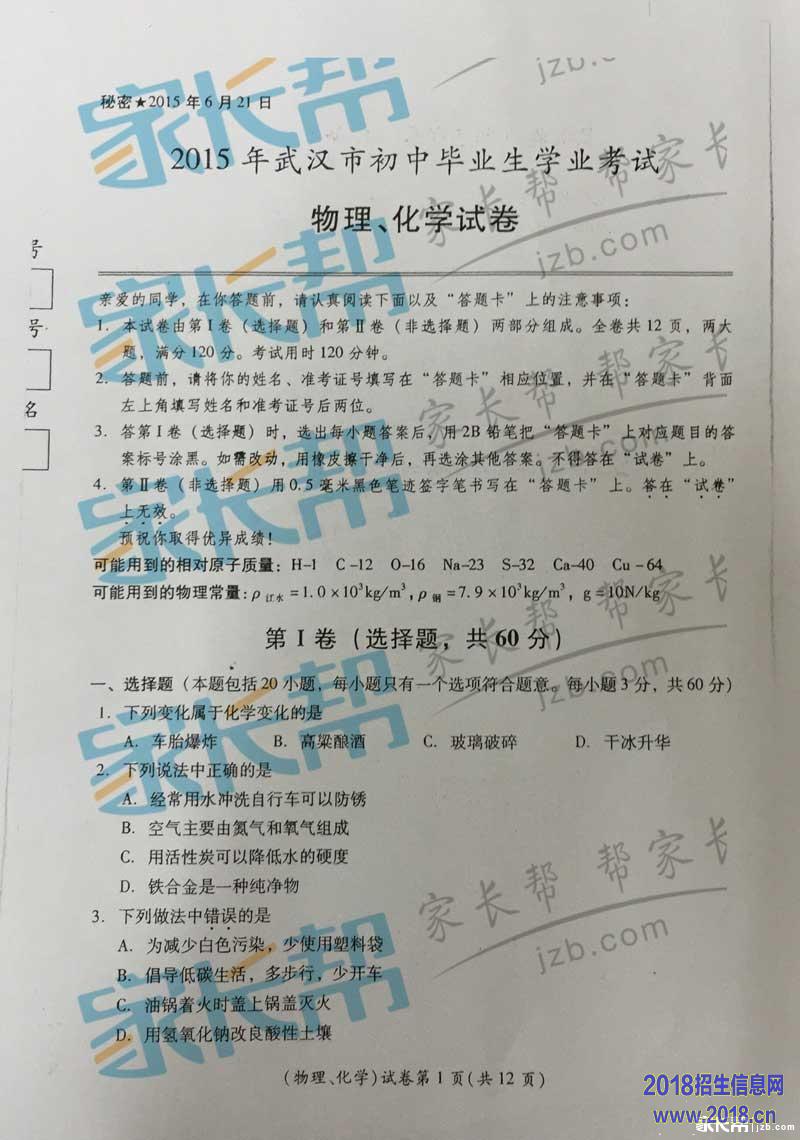 秘密★2015年6月21日
2015年武汉市初中毕业生学业考试
物理、化学试卷
号
号
名
亲爱的同学，在你答题前，请认真阅读下面以及“答题卡”上的注意事项：
1. 本试卷由第Ⅰ卷（选择题）和第Ⅱ卷（非选择题）两部分组成。全卷共12页，两大
题，满分120分。考试用时120分钟。
2. 答题前，请将你的姓名、准考证号填写在“答题卡”相应位置，并在“答题卡”背面
左上角填写姓名和准考证号后两位。
3. 答第Ⅰ卷（选择题）时，选出每小题答案后，用2B铅笔把“答题卡”上对应题目的答
案标号涂黑。如需改动，用橡皮擦干净后，再选涂其他答案。不得答在“试卷”上。
4. 第Ⅱ卷（非选择题）用0.5毫米黑色笔迹签字笔书写在“答题卡”上。答在“试卷”
上无效。
预祝你取得优异成绩！
可能用到的相对原子质量：H-1 C-12 O-16 Na-23 S-32 Ca-40 Cu-64
可能用到的物理常量：ρ江水=1.0×10³kg/m³，ρ钢=7.9×10³kg/m³，g=10N/kg
第Ⅰ卷（选择题，共60分）
一、选择题（本题包括20小题，每小题只有一个选项符合题意。每小题3分，共60分）
1. 下列变化属于化学变化的是
A. 车胎爆炸 B. 高粱酿酒 C. 玻璃破碎 D. 干冰升华
2. 下列说法中正确的是
A. 经常用水冲洗自行车可以防锈
B. 空气主要由氮气和氧气组成
C. 用活性炭可以降低水的硬度
D. 铁合金是一种纯净物
3. 下列做法中错误的是
A. 为减少白色污染，少使用塑料袋
B. 倡导低碳生活，多步行，少开车
C. 油锅着火时盖上锅盖灭火
D. 用氢氧化钠改良酸性土壤
（物理、化学）试卷第1页（共12页）
家长帮
家长帮
家长帮
家长帮
家长帮
jzb.com
家长帮 帮家长
jzb.com
家长帮 帮家长
jzb.com
家长帮 帮家长
jzb.com
家长帮 帮家长
jzb.com
2018招生信息网
www.2018.cn
家长帮 jzb.com